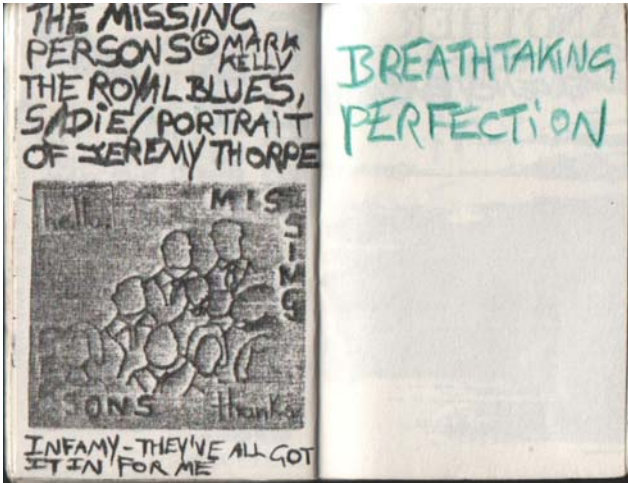 THE MISSING
PERSONS © MARK
KELLY
THE ROYAL BLUES,
SADIE/PORTRAIT
OF JEREMY THORPE
hello!
MIS
SIMS
ONS
thanks
INFAMY - THEY'VE ALL GOT
IT IN FOR ME
BREATHTAKING
PERFECTION